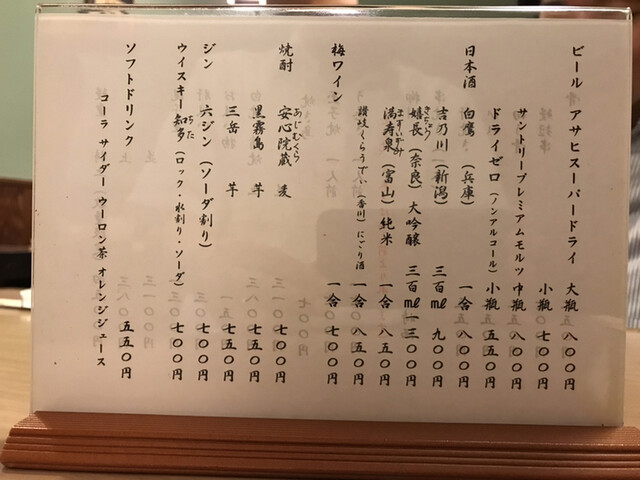 ビール アサヒスーパードライ 大瓶 八〇〇円
小瓶 七〇〇円
サントリープレミアムモルツ 中瓶 八〇〇円
ドライゼロ(ノンアルコール) 小瓶 五五〇円
日本酒 白鷹(兵庫) 一合 八〇〇円
吉乃川(新潟) 三百ml 九〇〇円
きちょう
嬉長(奈良) 大吟醸 三百ml 一三〇〇円
ますいずみ
満寿泉(富山) 純米 一合 八五〇円
讃岐くらうでぃ(香川) にごり酒 一合 八五〇円
梅ワイン 一合 七〇〇円
あじむくら
焼酎 安心院蔵 麦 七〇〇円
黒霧島 芋 七五〇円
三岳 芋 七五〇円
ジン 六ジン(ソーダ割り) 七〇〇円
ちた
ウイスキー 知多(ロック・水割り・ソーダ) 七〇〇円
ソフトドリンク 五五〇円
コーラ サイダー ウーロン茶 オレンジジュース